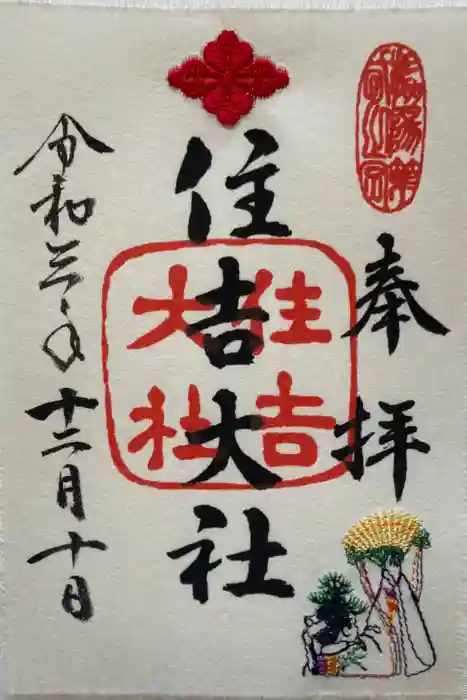 奉拝
住吉大社
住吉大社
令和三年十二月十日